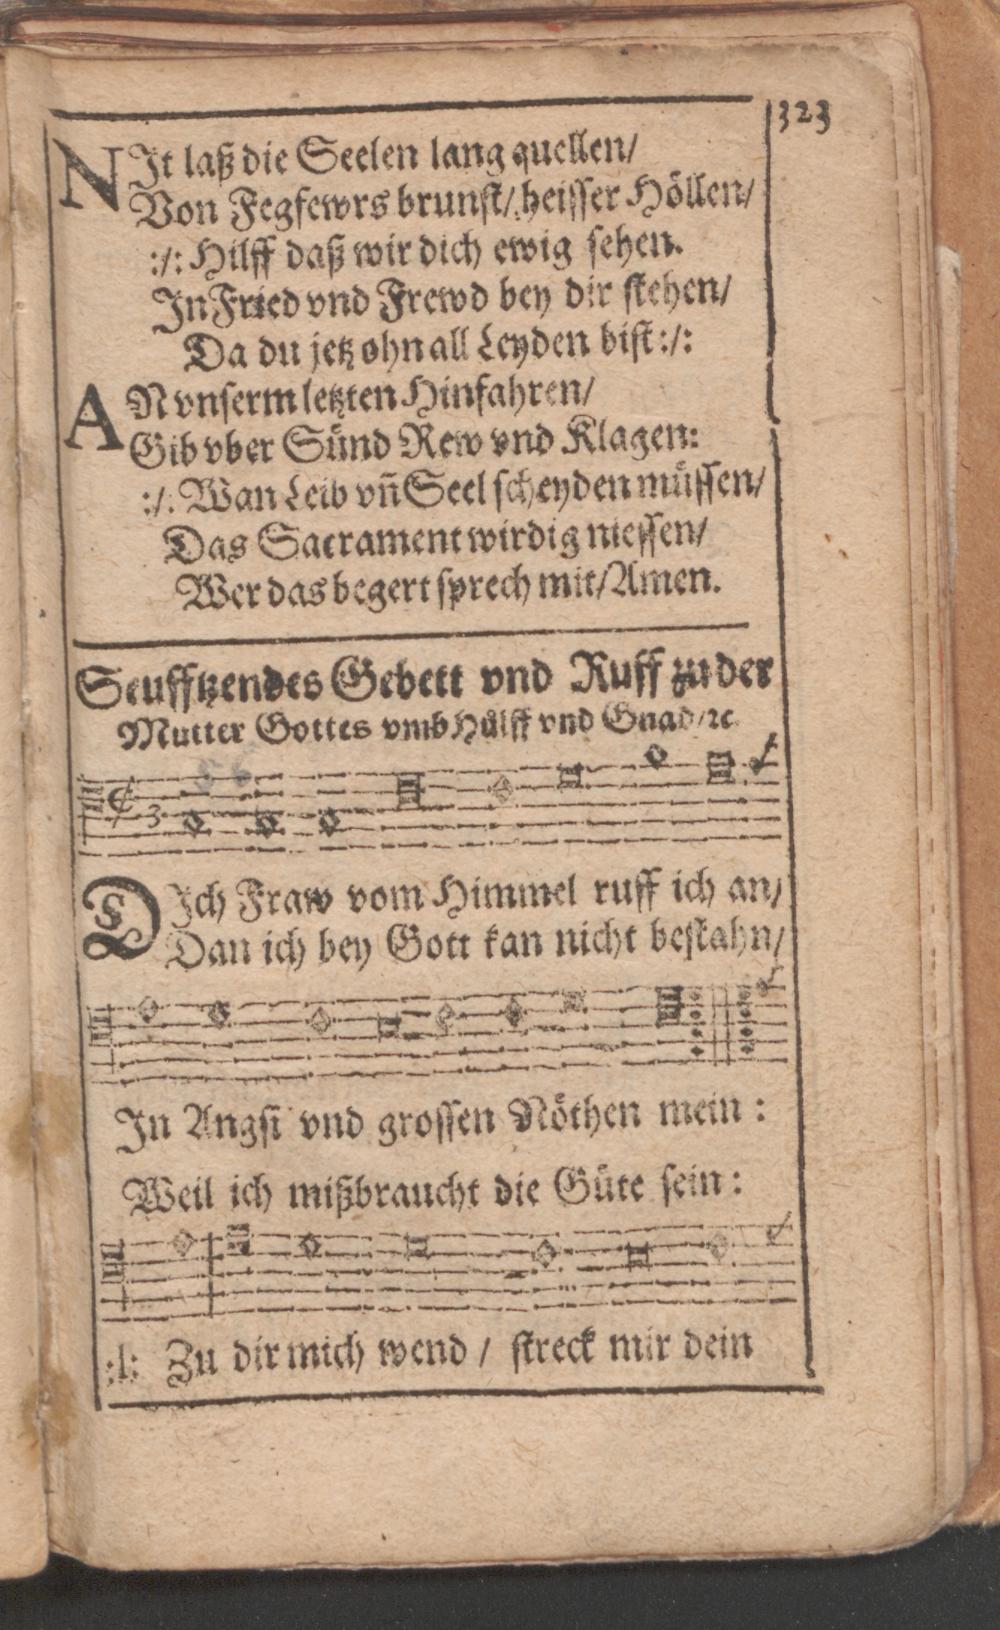 323
NJt laß die Seelen lang quellen/
Von Fegfewrs brunst/ heisser Höllen/
:/: Hilff daß wir dich ewig sehen.
Jn Fried vnd Frewd bey dir stehen/
Da du jetz ohn all Leyden bist :/:
AN vnserm letzten Hinfahren/
Gib vber Sünd Rew vnd Klagen:
:/: Wan Leib vñ Seel scheyden müssen/
Das Sacrament wirdig niessen/
Wer das begert sprech mit/ Amen.
Seufftzendes Gebett vnd Ruff zu der
Mutter Gottes vmb Hülff vnd Gnad/ ꝛc.
3
DJch Fraw vom Himmel ruff ich an/
Dan ich bey Gott kan nicht bestahn/
Jn Angst vnd grossen Nöthen mein :
Weil ich mißbraucht die Güte sein :
:l: Zu dir mich wend / streck mir dein